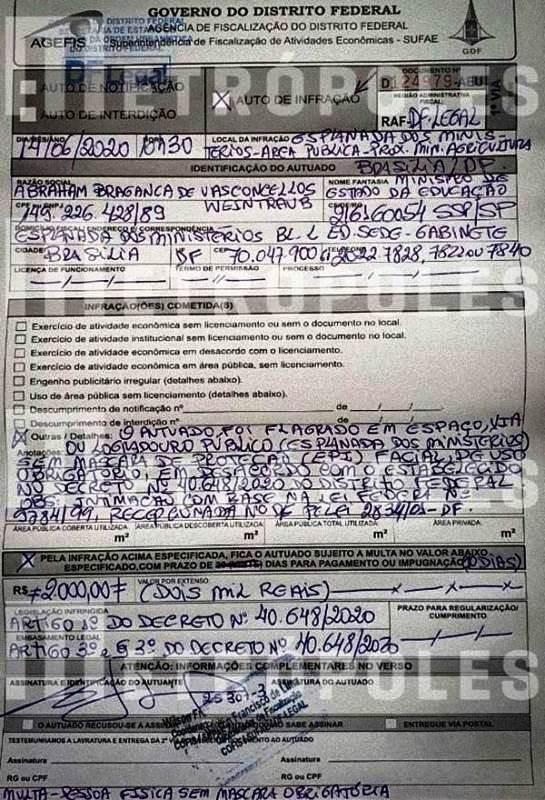 GOVERNO DO DISTRITO FEDERAL
AGÊNCIA DE FISCALIZAÇÃO DO DISTRITO FEDERAL
Superintendência de Fiscalização de Atividades Econômicas - SUFAE
AGEFIS
GDF
DISTRITO FEDERAL
DA ORDEM URBANÍSTICA
DO DISTRITO FEDERAL
DF Legal
METRÓPOLES
AUTO DE NOTIFICAÇÃO
AUTO DE INTERDIÇÃO
X AUTO DE INFRAÇÃO
DOCUMENTO Nº
D 124979-AEU
REGIÃO ADMINISTRATIVA FISCAL:
RAF: DF LEGAL
1ª VIA
DIA/MÊS/ANO
14/06/2020
LOCAL DA INFRAÇÃO ESPLANADA DOS MINIS-
TÉRIOS-ÁREA PÚBLICA-PROX. MIN. AGRICULTURA
BRASÍLIA/DF.
IDENTIFICAÇÃO DO AUTUADO
RAZÃO SOCIAL
ABRAHAM BRAGANÇA DE VASCONCELLOS
WEINTRAUB
NOME FANTASIA MINISTRO DE
ESTADO DA EDUCAÇÃO
CPF
SSP/SP
ENDEREÇO P/ CORRESPONDÊNCIA
ESPLANADA DOS MINISTÉRIOS BL. L ED. SEDE - GABINETE
CIDADE
BRASÍLIA
DF
CEP
70.047.900
TELEFONE
2022.7828, 7822 ou 7840
LICENÇA DE FUNCIONAMENTO
TERMO DE PERMISSÃO
PROCESSO
METRÓPOLES
INFRAÇÃO(ÕES) COMETIDA(S)
Exercício de atividade econômica sem licenciamento ou sem o documento no local.
Exercício de atividade institucional sem licenciamento ou sem o documento no local.
Exercício de atividade econômica em desacordo com o licenciamento.
Exercício de atividade econômica em área pública, sem licenciamento.
Engenho publicitário irregular (detalhes abaixo).
Uso de área pública sem licenciamento (detalhes abaixo).
Descumprimento de notificação nº de / /
Descumprimento de interdição nº de / /
X Outras / Detalhes: O AUTUADO FOI FLAGRADO EM ESPAÇO, VIA
Anotações: OU LOGRADOURO PÚBLICO (ESPLANADA DOS MINISTÉRIOS)
SEM MÁSCARA DE PROTEÇÃO (EPI) FACIAL, DE USO
OBRIGATÓRIO, EM DESACORDO COM O ESTABELECIDO
NO DECRETO Nº 40.648/2020 DO DISTRITO FEDERAL
OBS: INTIMAÇÃO COM BASE NA LEI FEDERAL Nº
9784/99, RECEPCIONADA NO DF P/ LEI 2834/01-DF.
ÁREA PÚBLICA COBERTA UTILIZADA
ÁREA PÚBLICA DESCOBERTA UTILIZADA
ÁREA PÚBLICA TOTAL UTILIZADA
ÁREA PRIVADA
m² m² m² m²
X PELA INFRAÇÃO ACIMA ESPECIFICADA, FICA O AUTUADO SUJEITO A MULTA NO VALOR ABAIXO
ESPECIFICADO, COM PRAZO DE DIAS PARA PAGAMENTO OU IMPUGNAÇÃO (10 DIAS)
R$ =2.000,00=
VALOR POR EXTENSO
(DOIS MIL REAIS)
LEGISLAÇÃO INFRINGIDA
ARTIGO 1º DO DECRETO Nº 40.648/2020
PRAZO PARA REGULARIZAÇÃO/
CUMPRIMENTO
EMBASAMENTO LEGAL
ARTIGO 3º DO DECRETO Nº 40.648/2020
ATENÇÃO: INFORMAÇÕES COMPLEMENTARES NO VERSO
ASSINATURA E IDENTIFICAÇÃO DO AUTUANTE
ASSINATURA DO AUTUADO
O AUTUADO RECUSOU-SE A ASSINAR
SABE ASSINAR
ENTREGUE VIA POSTAL
METRÓPOLES
TESTEMUNHAMOS A LAVRATURA E ENTREGA DA 2ª AO AUTUADO
Assinatura:
Assinatura:
RG ou CPF
RG ou CPF
MULTA-PESSOA FÍSICA SEM MÁSCARA OBRIGATÓRIA